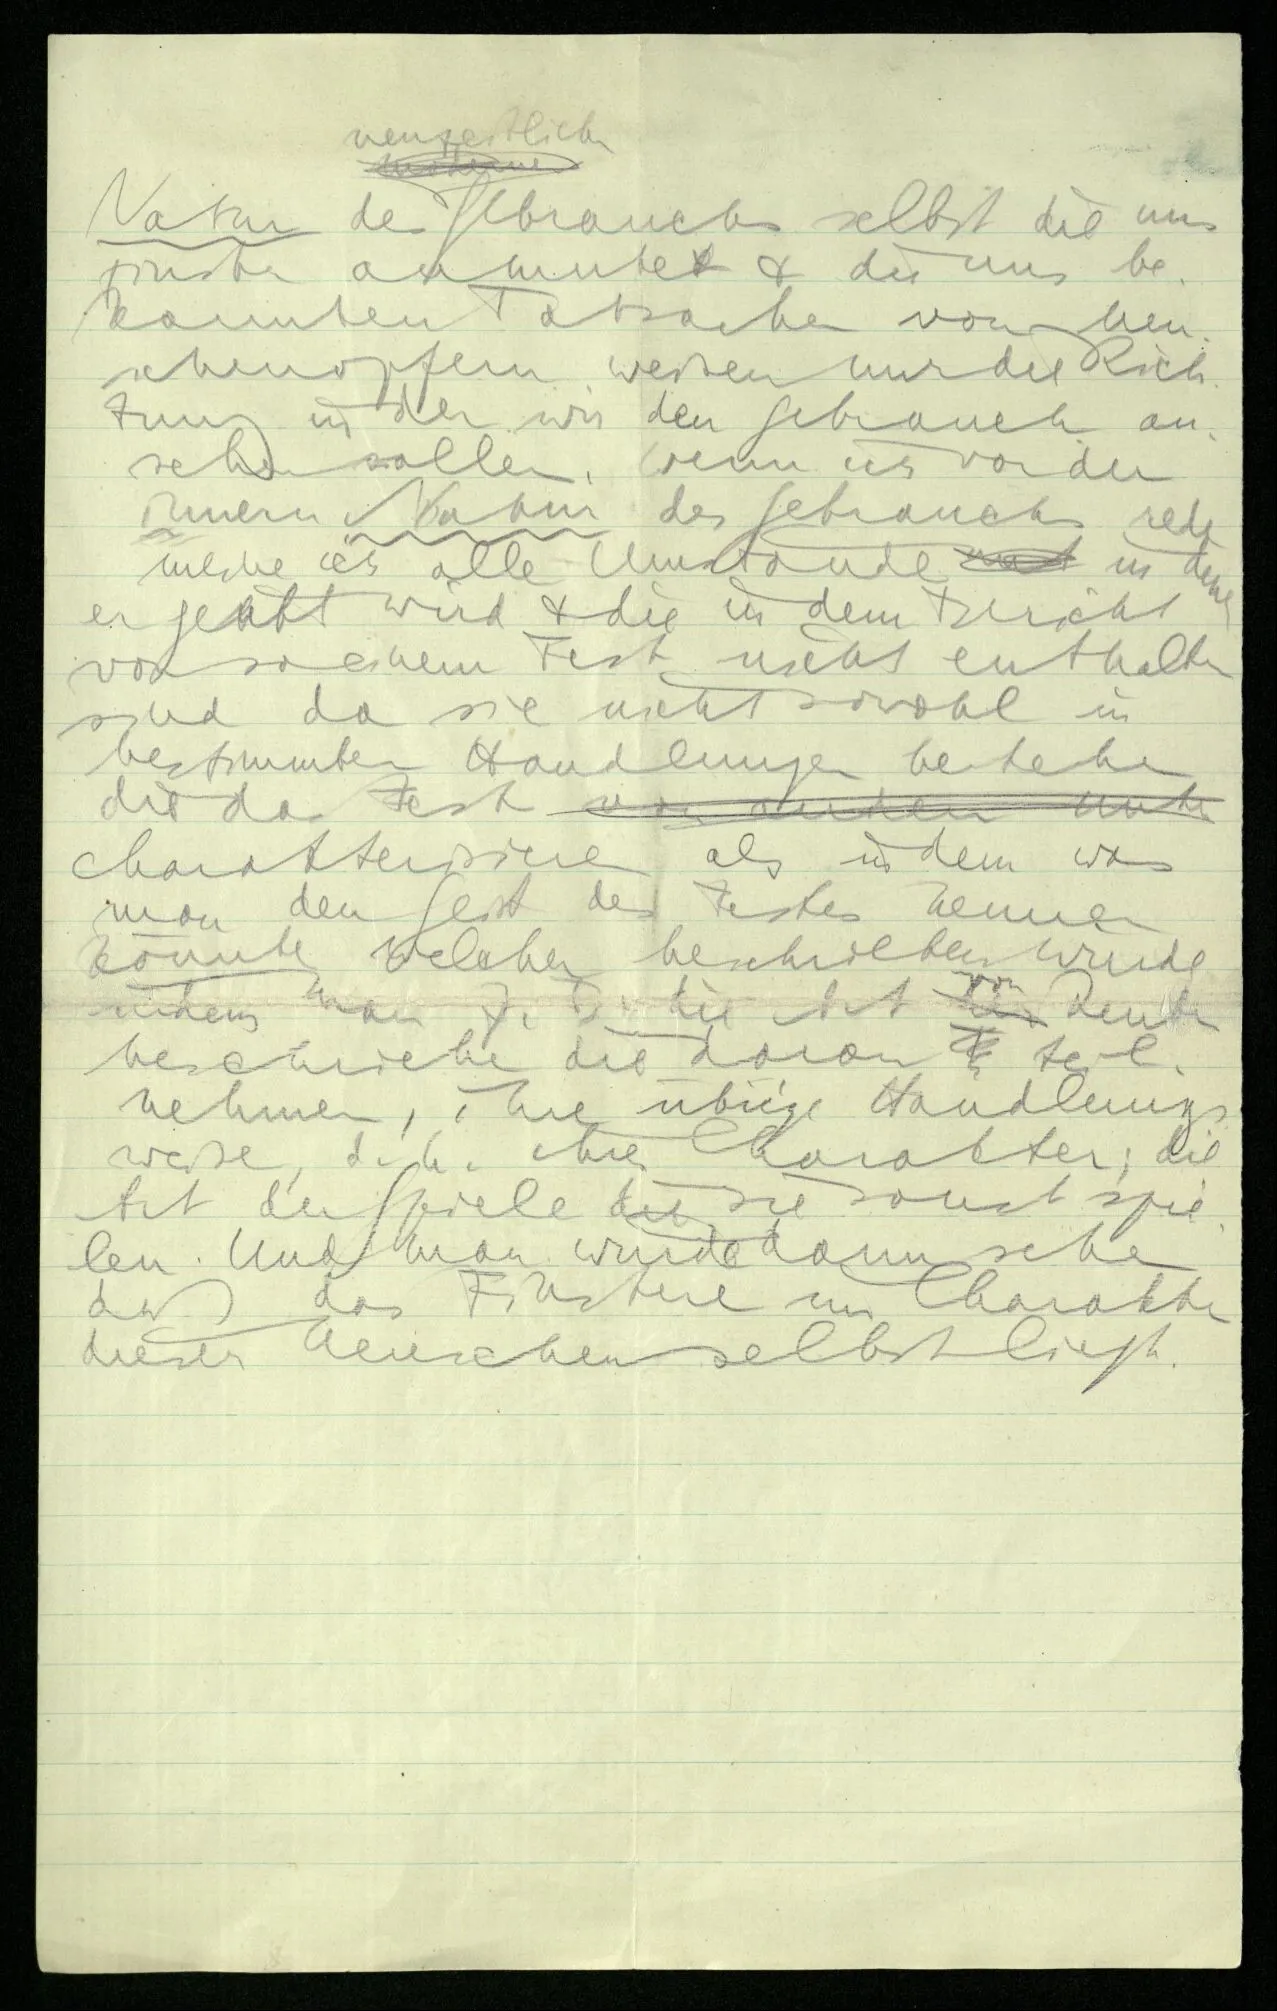 neuzeitlichen
moderne
Natur des Gebrauchs selbst die uns
finster anmutet & die uns be-
kannten Tatsachen von Men-
schenopfern weisen nur die Rich-
tung in der wir den Gebrauch an-
sehen sollen. Wenn ich von der
innern Natur des Gebrauchs rede
meine ich alle Umstände in denen
er geübt wird & die in dem Bericht
von so einem Fest nicht enthalten
sind da sie nicht sowohl in
bestimmten Handlungen bestehen
die das Fest von andern unter
charakterisieren als in dem was
man den Geist des Festes nennen
könnte welcher beschrieben würde
indem man z.B. die Art von Leuten
beschriebe die daran teil-
nehmen, ihre übrige Handlungs-
weise, d.h. ihren Charakter; die
Art der Spiele die sie sonst spie-
len. Und man würde dann sehen
daß das Finstere im Charakter
dieser Menschen selbst liegt.